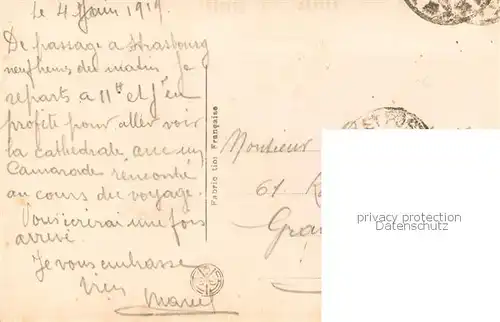 le 4 Juin 1919.
De passage a Strasbourg
neuf heures du matin je
reparts a 11h et j'en
profite pour aller voir
la cathédrale avec un
Camarade rencontré
au cours du voyage.
Vous écrirai une fois
arrivé.
Je vous embrasse
bien
Marcel
Fabrication Française
Monsieur
61
Gran
privacy protection
Datenschutz